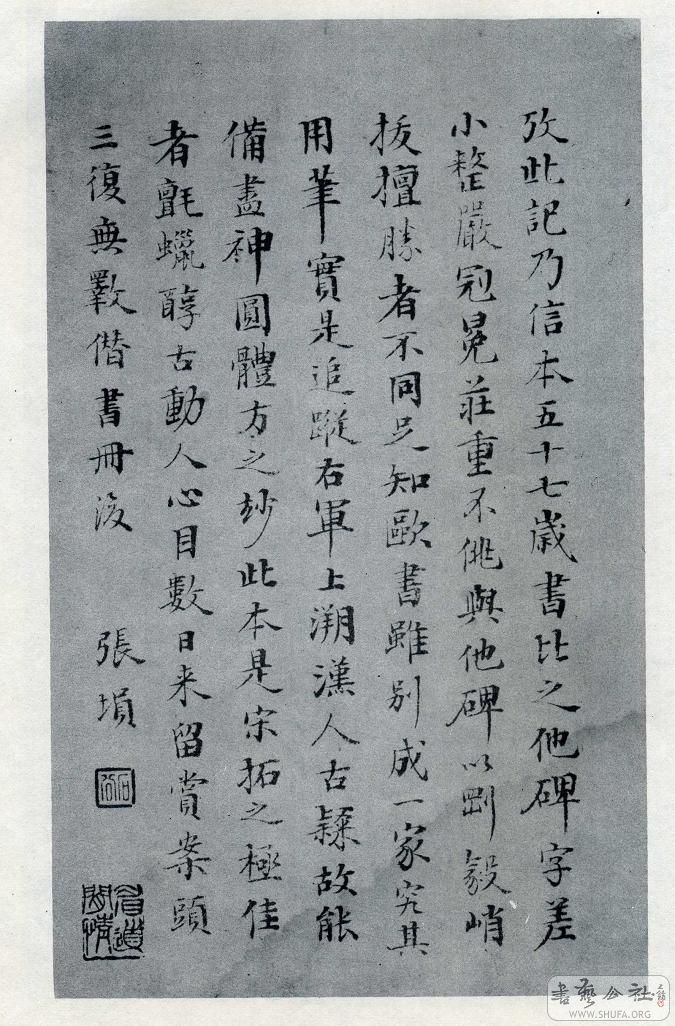 攷此記乃信本五十七歲書比之他碑字差
小整嚴冠冕莊重不佻與他碑以剛毅峭
拔擅勝者不同足知歐書雖别成一家究其
用筆實是追蹤右軍上溯漢人古隸故能
備盡神圓體方之妙此本是宋拓之極佳
者氈蠟醇古動人心目數日来留賞案頭
三復無斁僭書冊後
張塤
書藝公社
WWW.SHUFA.ORG